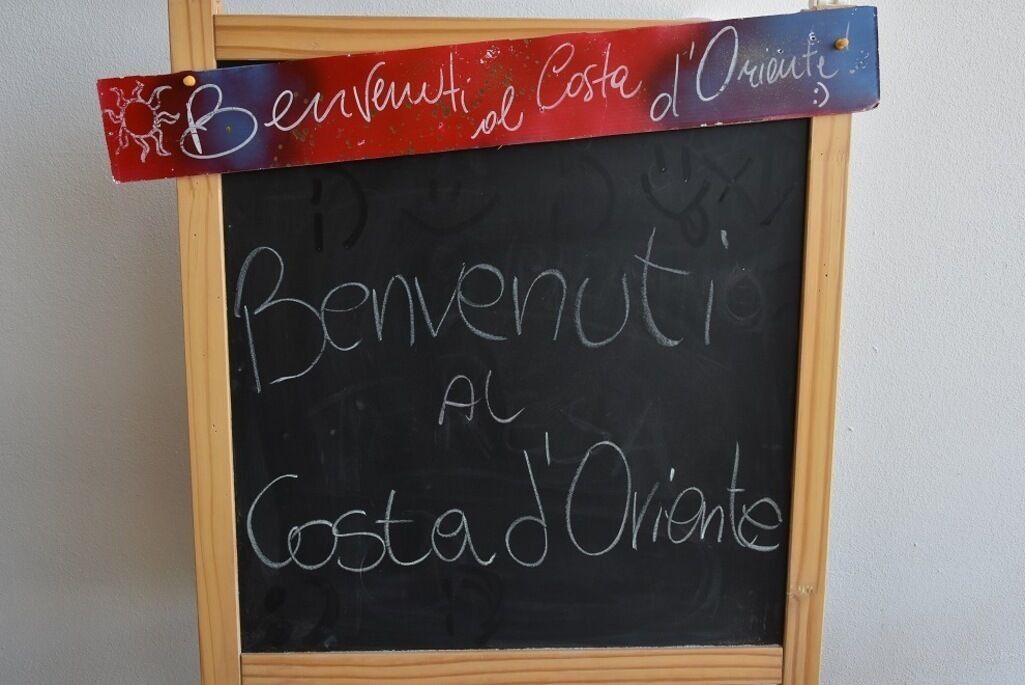 Benvenuti al Costa d'Oriente! :)
Benvenuti
AL
Costa d'Oriente